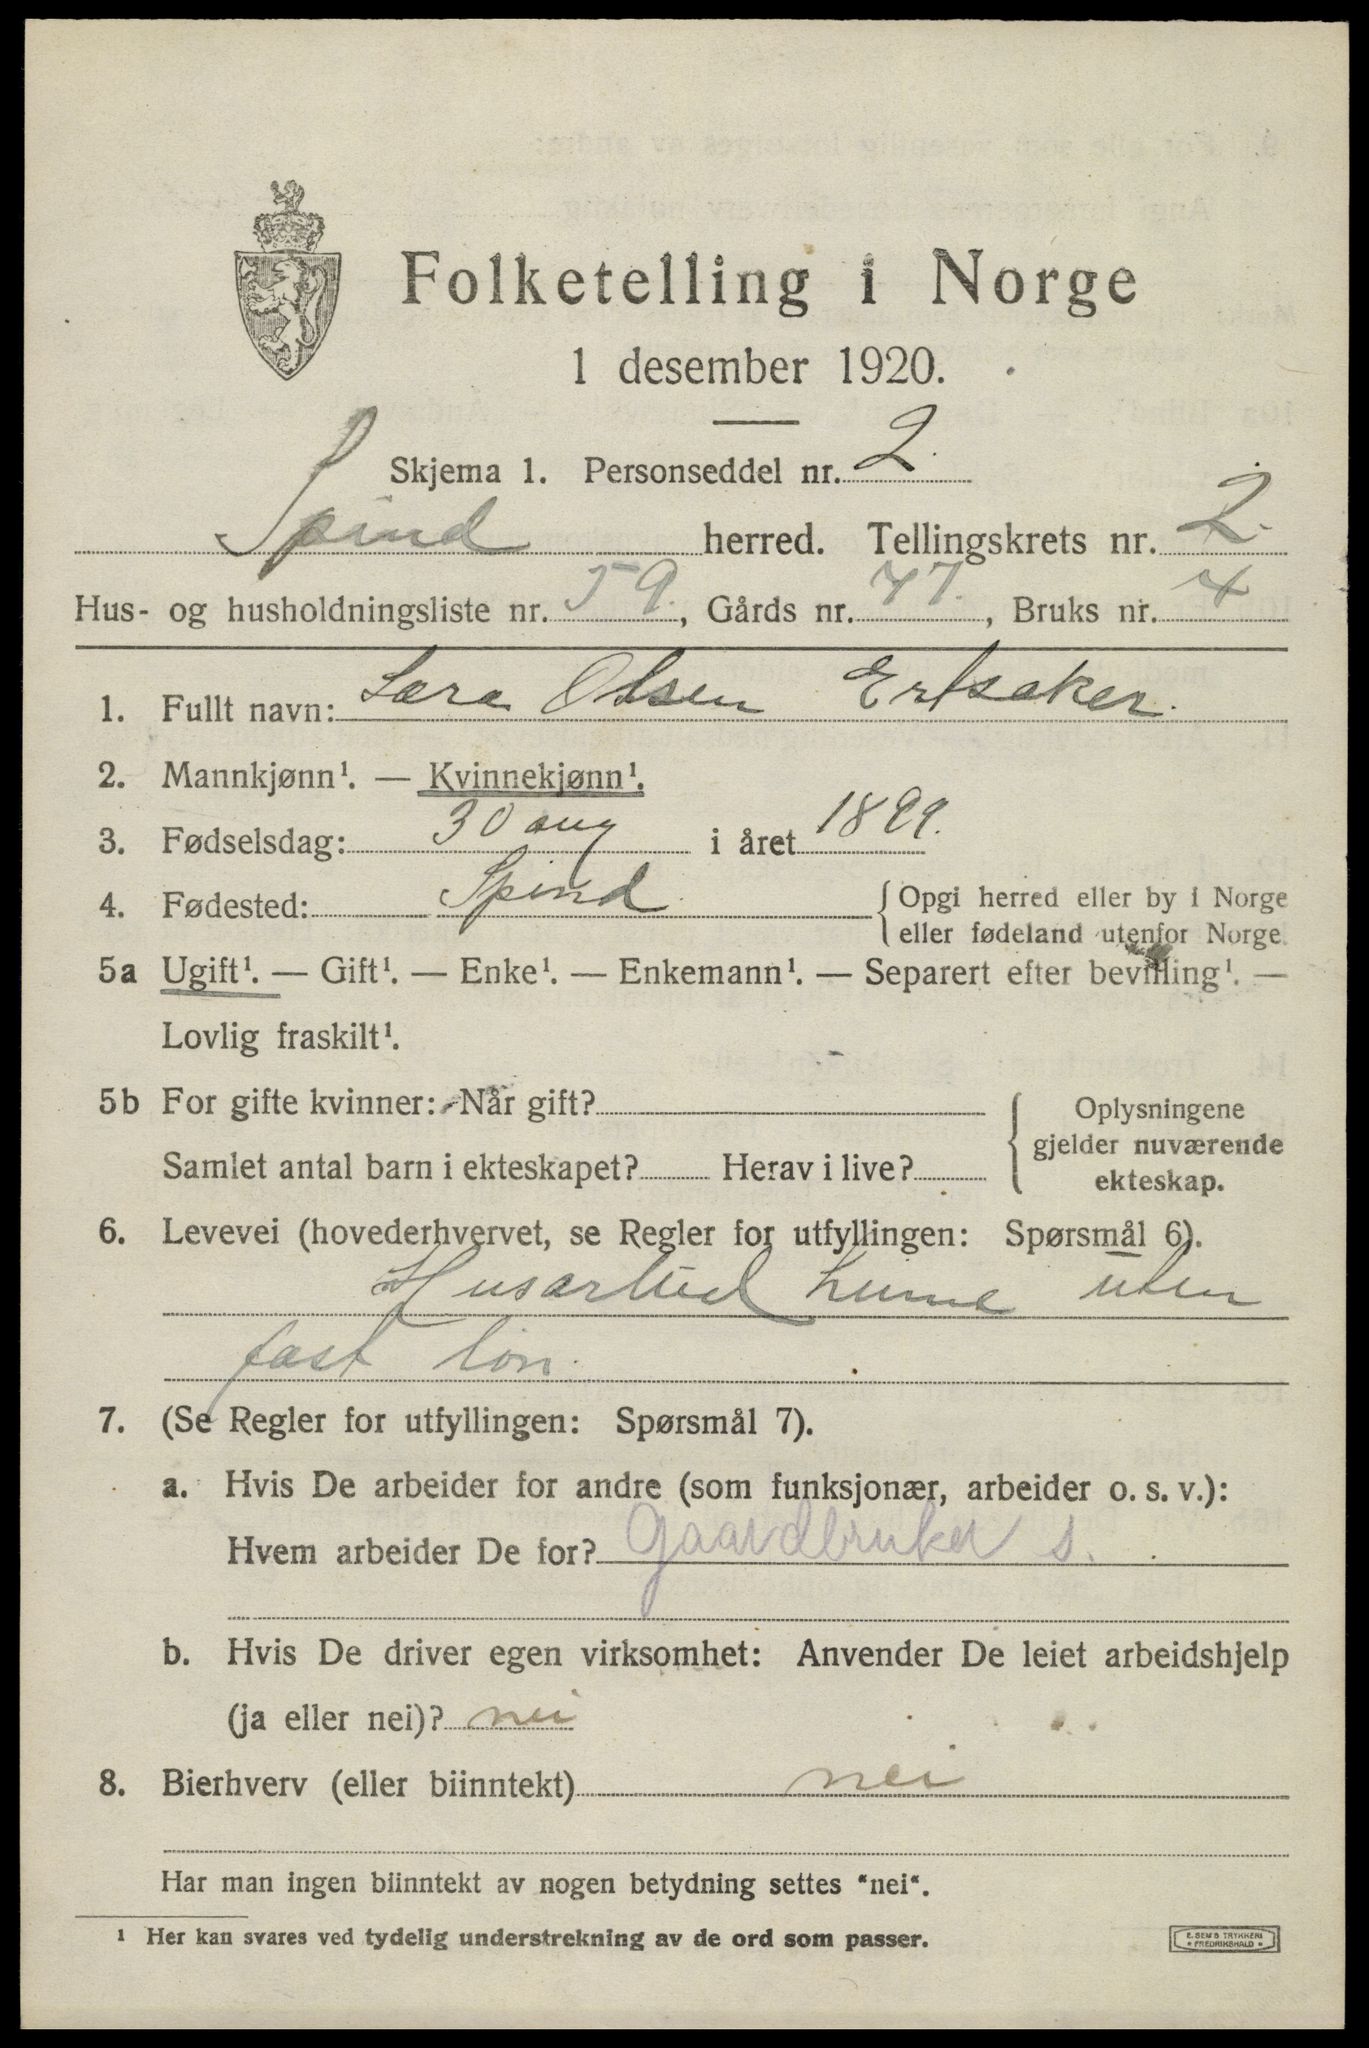 Folketelling i Norge
1 desember 1920.
Skjema 1. Personseddel nr. 2.
Spind herred. Tellingskrets nr. 2.
Hus- og husholdningsliste nr. 59., Gårds nr. 77., Bruks nr. 4
1. Fullt navn: Sara Olsen Ertseker.
2. Mannkjønn¹. — Kvinnekjønn¹.
3. Fødselsdag: 30 aug i året 1899.
4. Fødested: Spind {Opgi herred eller by i Norge
eller fødeland utenfor Norge.
5a Ugift¹. — Gift¹. — Enke¹. — Enkemann¹. — Separert efter bevilling¹. —
Lovlig fraskilt¹.
5b For gifte kvinner: Når gift? {Oplysningene
gjelder nuværende
Samlet antal barn i ekteskapet? Herav i live?
ekteskap.
6. Levevei (hovederhvervet, se Regler for utfyllingen: Spørsmål 6).
Husarbeid hjeme uten
fast løn.
7. (Se Regler for utfyllingen: Spørsmål 7).
a. Hvis De arbeider for andre (som funksjonær, arbeider o. s. v.):
Hvem arbeider De for? Gaardbruker s.
b. Hvis De driver egen virksomhet: Anvender De leiet arbeidshjelp
(ja eller nei)? nei
8. Bierhverv (eller biinntekt) nei
Har man ingen biinntekt av nogen betydning settes "nei".
¹ Her kan svares ved tydelig understrekning av de ord som passer.
E. SEM'S TRYKKERI
• FREDRIKSHALD •